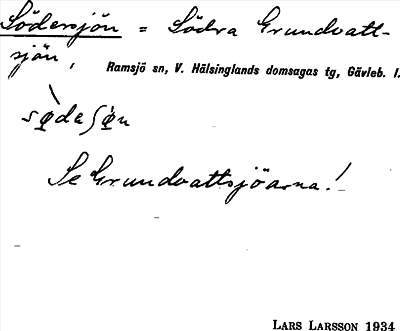 Södersjön = Södra Grundvatt-
sjön,
Ramsjö sn, V. Hälsinglands domsagas tg, Gävleb. l.
Se Grundvattsjöarna!
LARS LARSSON 1934